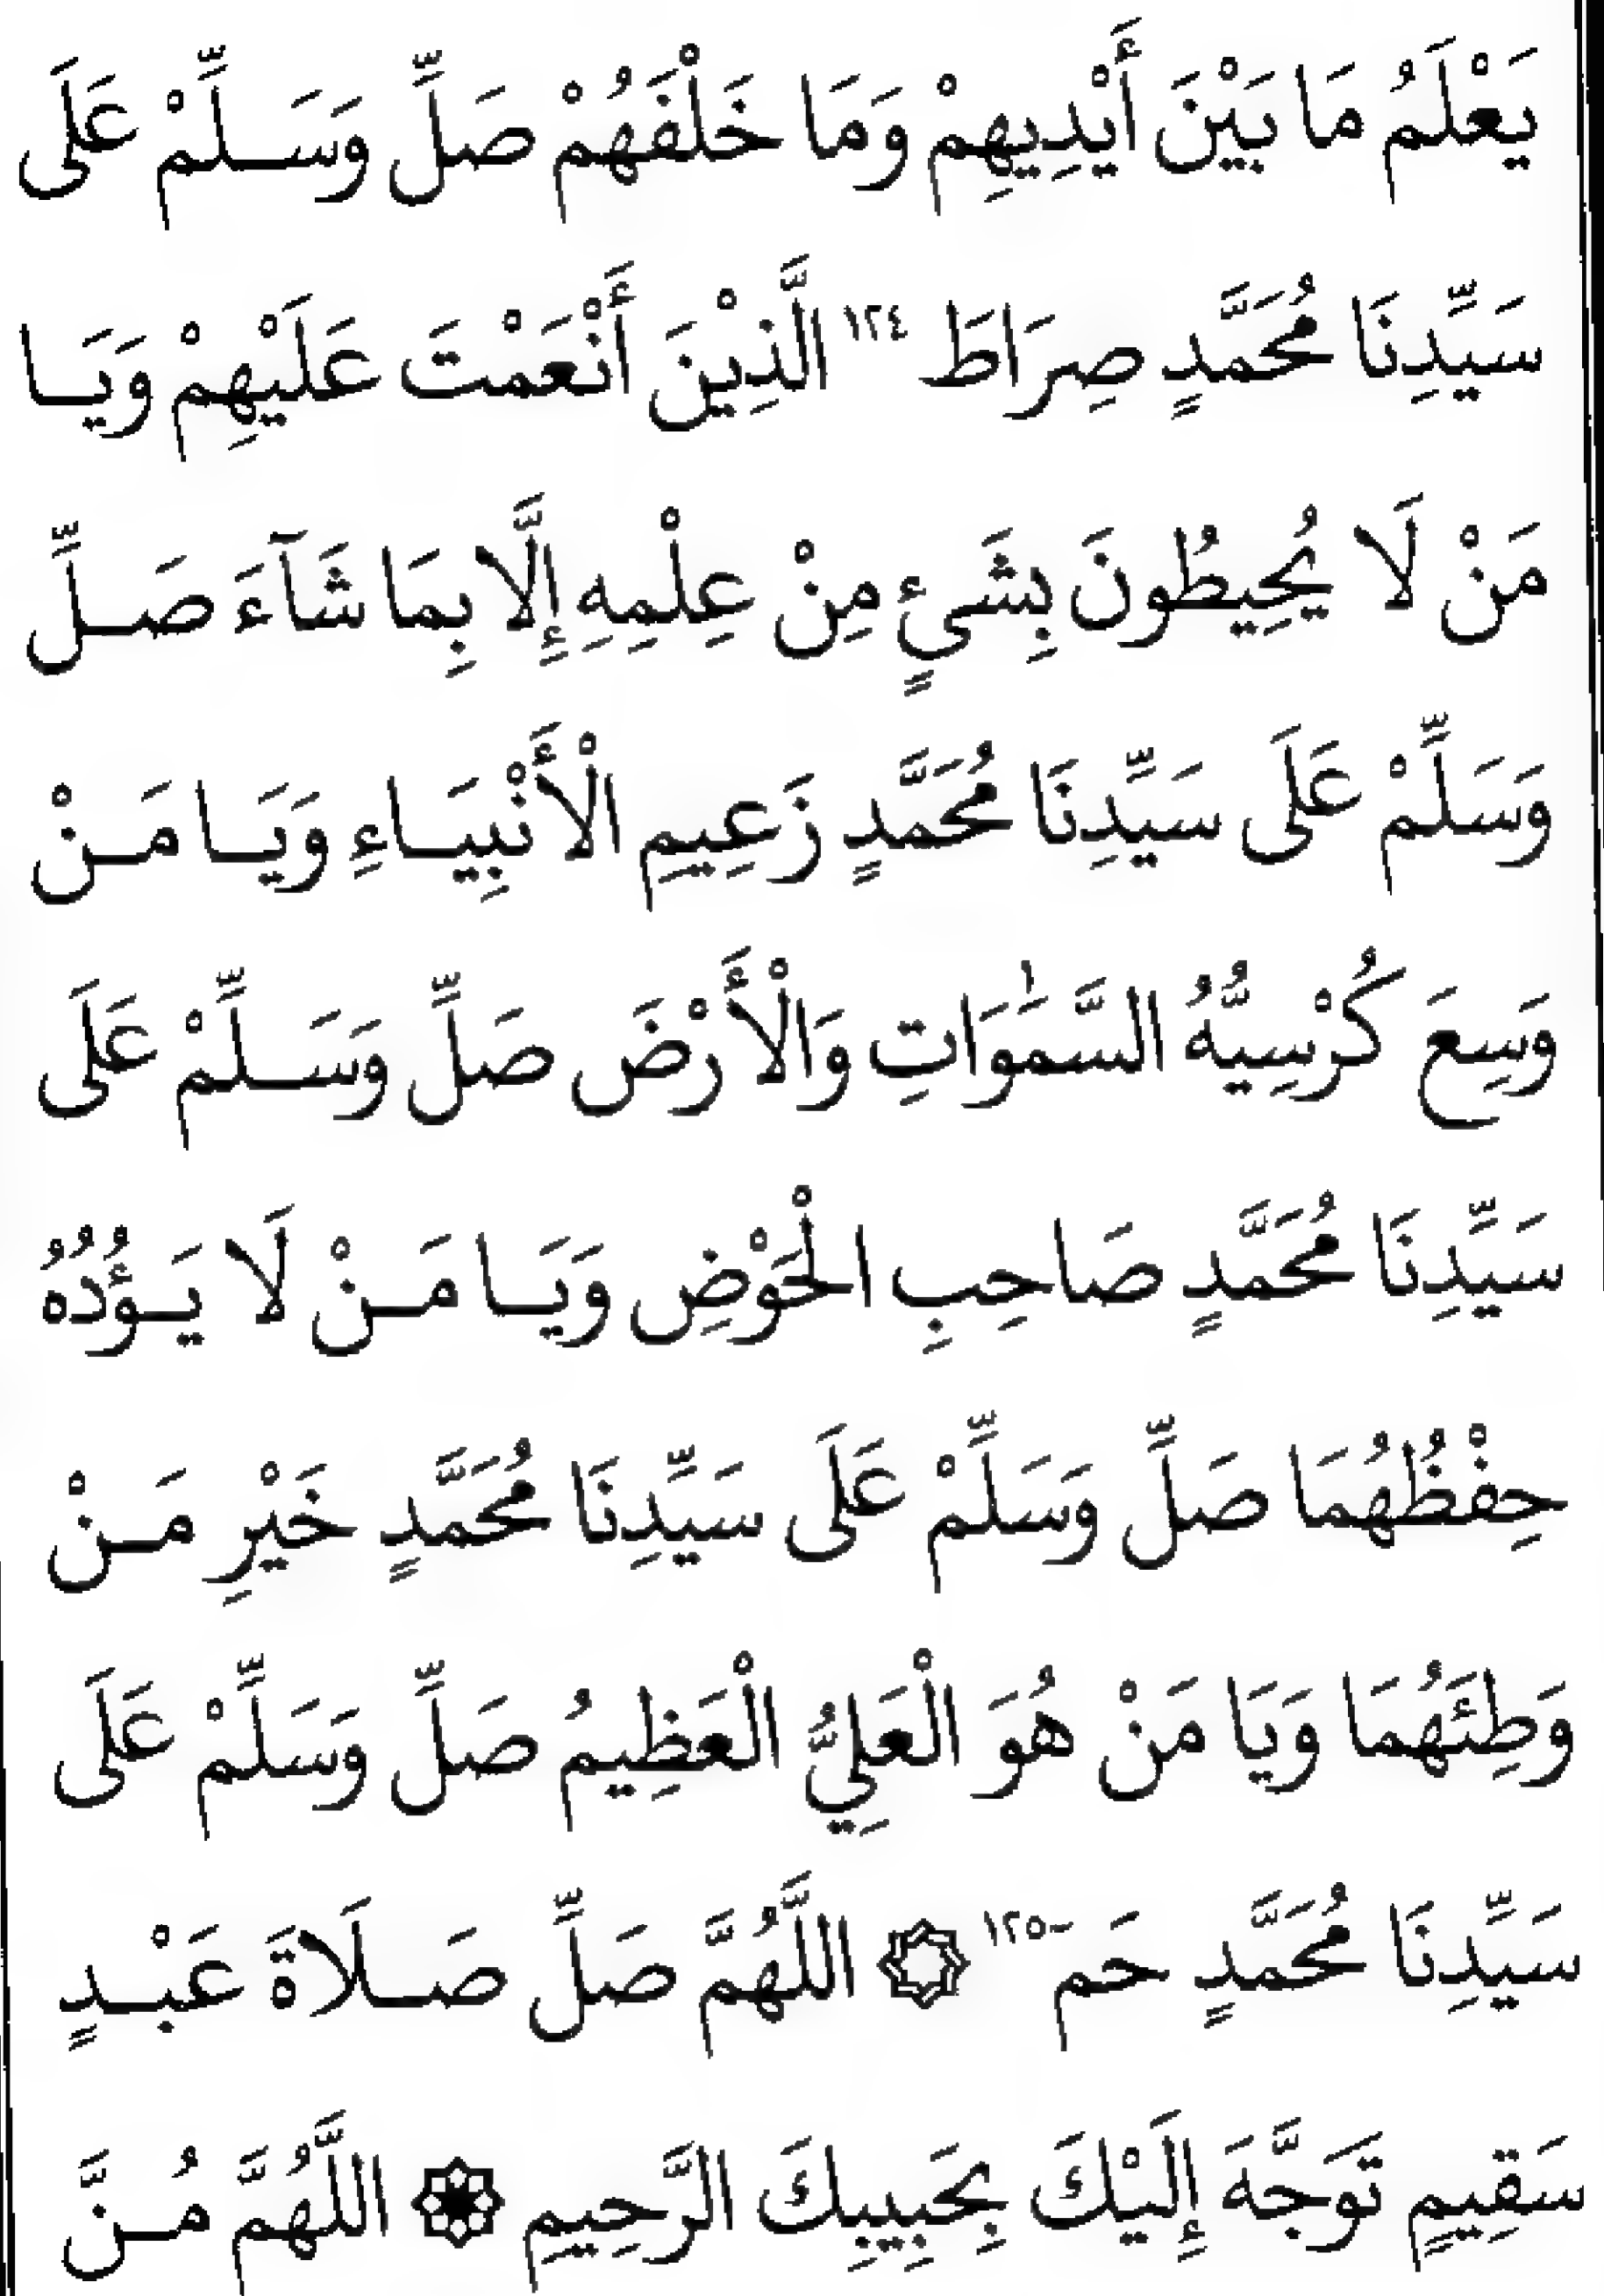 يَعْلَمُ مَا بَيْنَ أَيْدِيهِمْ وَمَا خَلْفَهُمْ صَلِّ وَسَلِّمْ عَلَى
سَيِّدِنَا مُحَمَّدٍ صِرَاطَ ١٢٤ الَّذِيْنَ أَنْعَمْتَ عَلَيْهِمْ وَيَا
مَنْ لَا يُحِيطُونَ بِشَىءٍ مِنْ عِلْمِهِ إِلَّا بِمَا شَآءَ صَلِّ
وَسَلِّمْ عَلَى سَيِّدِنَا مُحَمَّدٍ زَعِيمِ الْأَنْبِيَاءِ وَيَا مَنْ
وَسِعَ كُرْسِيُّهُ السَّمٰوَاتِ وَالْأَرْضَ صَلِّ وَسَلِّمْ عَلَى
سَيِّدِنَا مُحَمَّدٍ صَاحِبِ الْحَوْضِ وَيَا مَنْ لَا يَؤُدُهُ
حِفْظُهُمَا صَلِّ وَسَلِّمْ عَلَى سَيِّدِنَا مُحَمَّدٍ خَيْرِ مَنْ
وَطِئَهُمَا وَيَا مَنْ هُوَ الْعَلِيُّ الْعَظِيمُ صَلِّ وَسَلِّمْ عَلَى
سَيِّدِنَا مُحَمَّدٍ حَم -١٢٥ ۞ اللَّهُمَّ صَلِّ صَلَاةَ عَبْدٍ
سَقِيمٍ تَوَجَّهَ إِلَيْكَ بِحَبِيبِكَ الرَّحِيمِ ۞ اللَّهُمَّ مُنَّ